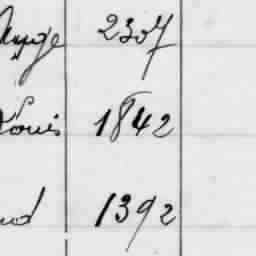 2307
Louis 1842
1392